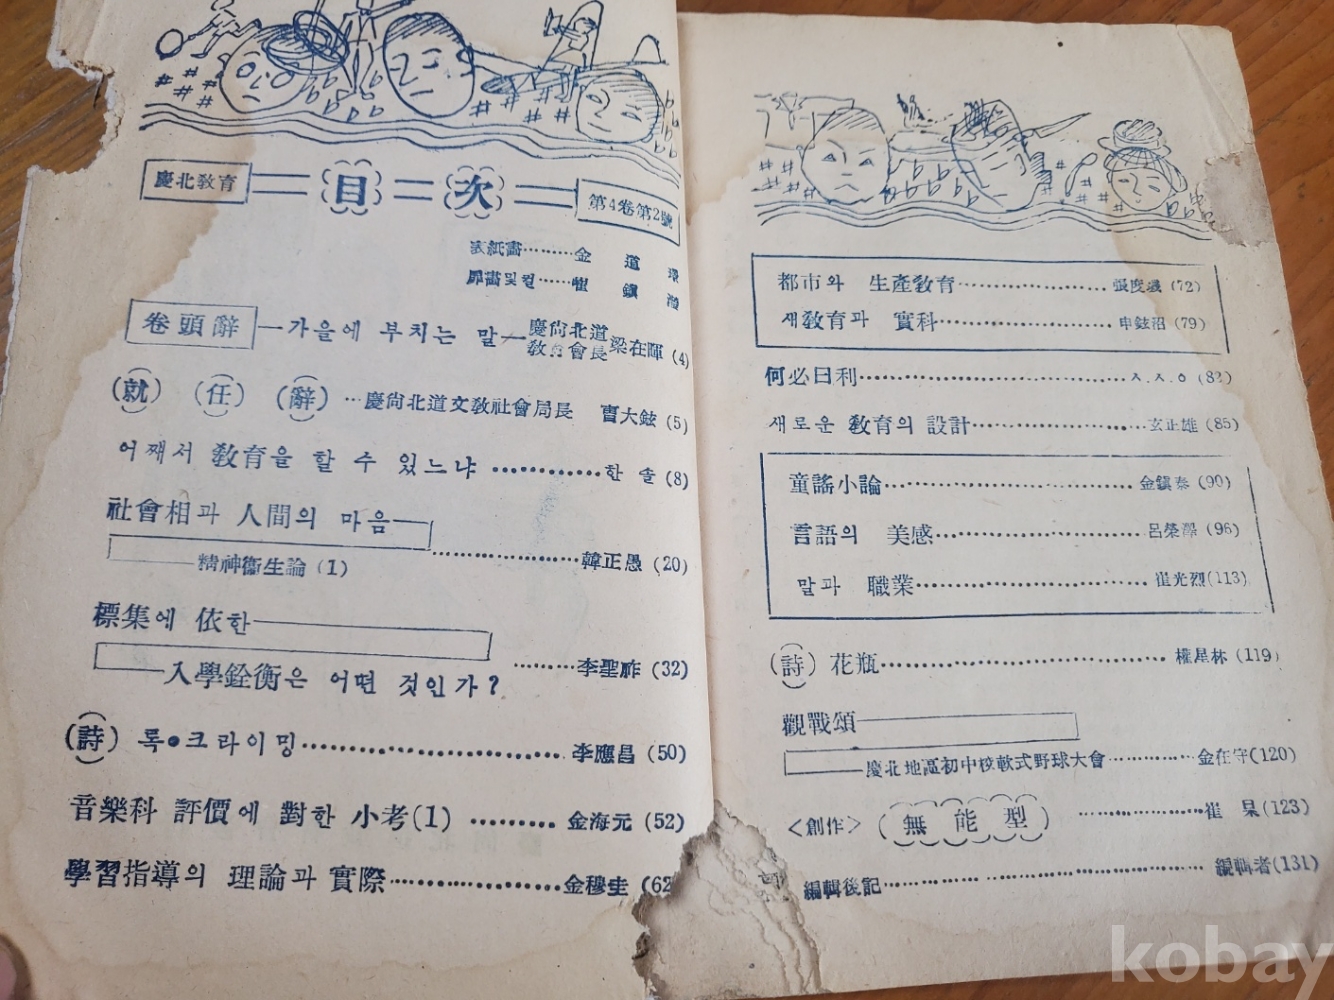 慶北敎育 目次 第4卷第2號
表紙畵………金道
扉畵및컽……崔鎭
卷頭辭 가을에 부치는 말 慶尙北道敎育會長 梁在暉 (4)
(就) (任) (辭) …慶尙北道文敎社會局長 曺大鉉 (5)
어째서 敎育을 할 수 있느냐 …………한 솔 (8)
社會相과 人間의 마음
精神衞生論 (1) ………韓正愚 (20)
標集에 依한
入學銓衡은 어떤 것인가? ………李聖祚 (32)
(詩) 록•크라이밍………李應昌 (50)
音樂科 評價에 對한 小考(1) ………金海元 (52)
學習指導의 理論과 實際………金穆圭 (62
都市와 生產敎育………張度 (72)
새敎育과 實科………申鉉沼 (79)
何必曰利………ㅅ.ㅈ.ㅇ (82)
새로운 敎育의 設計………玄正雄 (85)
童謠小論………金鎭泰 (90)
言語의 美感………呂榮澤 (96)
말과 職業………崔光烈(113)
(詩) 花瓶………權星林 (119)
觀戰頌
慶北地區初中校軟式野球大會………金在守(120)
<創作> (無能型) ………崔杲(123)
編輯後記………編輯者(131)
kobay